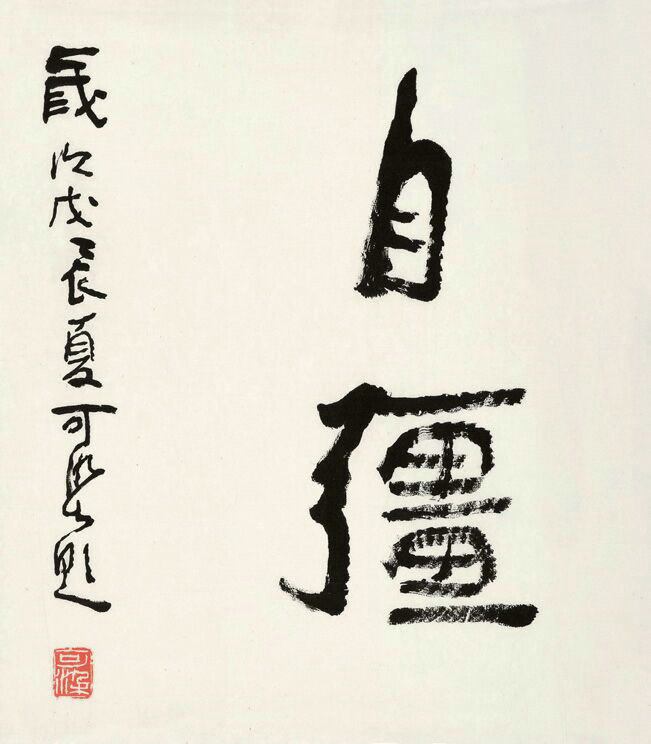 自彊
歲次戊辰夏可染題
可染